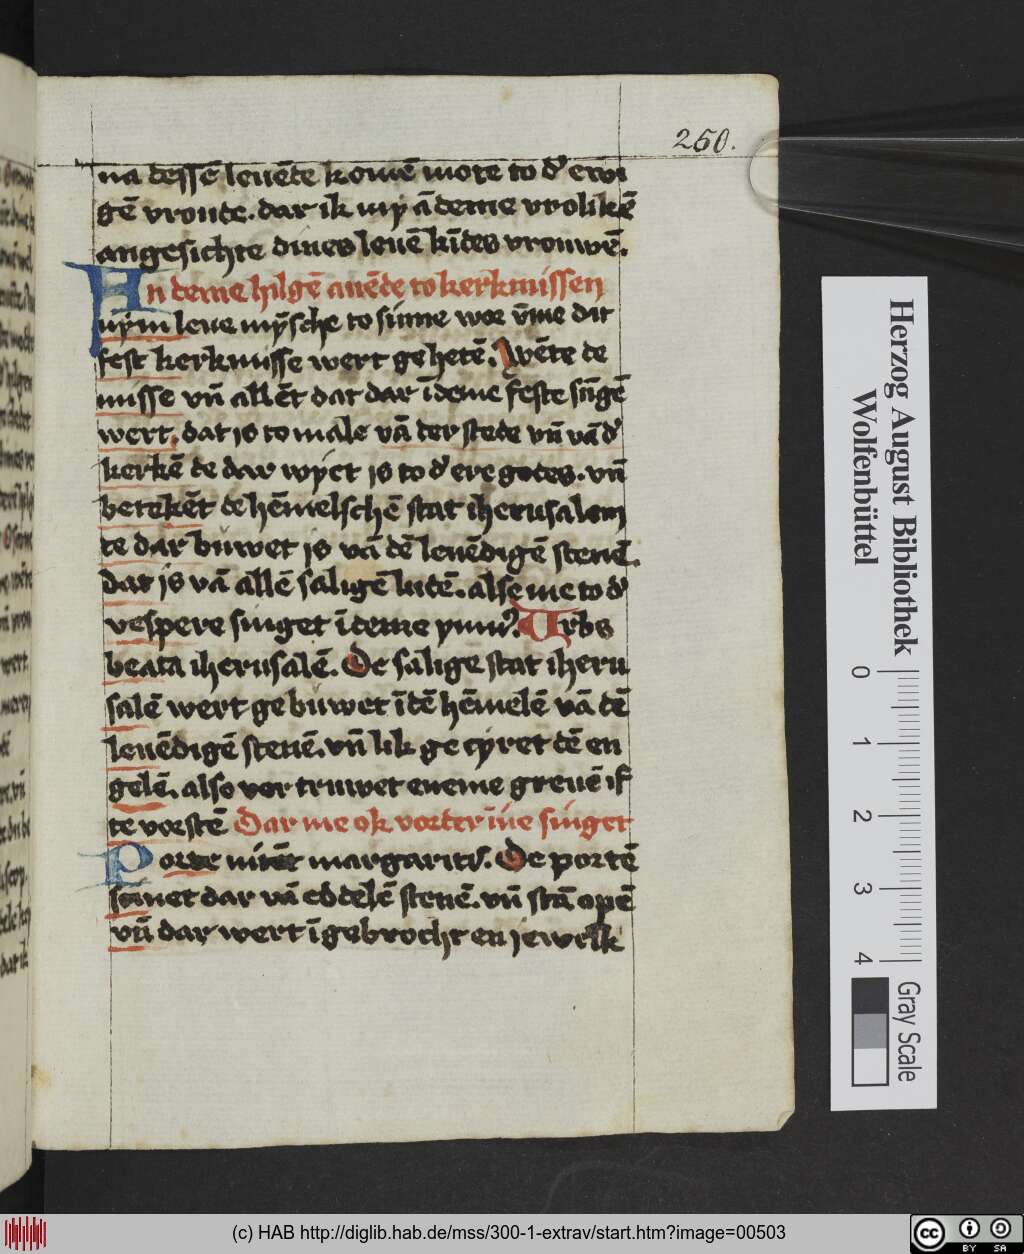 250.
na dessē leuēde komē mote to d' ewi
gē vroude. dar ik my ā deme vrolikē
angesichte dines leuē kīdes vrouwē.
An deme hilgē auēde to kerkmissen
nym leue mȳsche to sūme woe v̄me dit
fest kerkmisse wert ge hetē. Wēte de
misse vn̄ all ēt dat dar ī deme feste sūgē
wert. dat is to male vā der stede vn̄ vā d'
kerkē de dar wyet is to d' ere godes. vn̄
betekēt de hēmelschē stat iherusalem
te dar buwet is vā dē leuēdigē stenē.
dat is vā allē saligē lutē. alse me to d'
vespere singet ī deme ymn'. Urbs
beata iherusalē. De salige stat iheru
salē wert ge buwet ī dē hēmelē vā dē
leuēdigē stenē. vn̄ lik ge cyret dē en
gelē. also vor truwet eneme greuē if
te vorstē Dar me ok vorder īne singet
Porte nitēt margaritis. De portē
scinet dar vā eddelē stenē. vn̄ stā opē
vn̄ dar wert ī gebrocht en jewelk
Herzog August Bibliothek
Wolfenbüttel
0 1 2 3 4
Gray Scale
(c) HAB http://diglib.hab.de/mss/300-1-extrav/start.htm?image=00503
cc BY SA